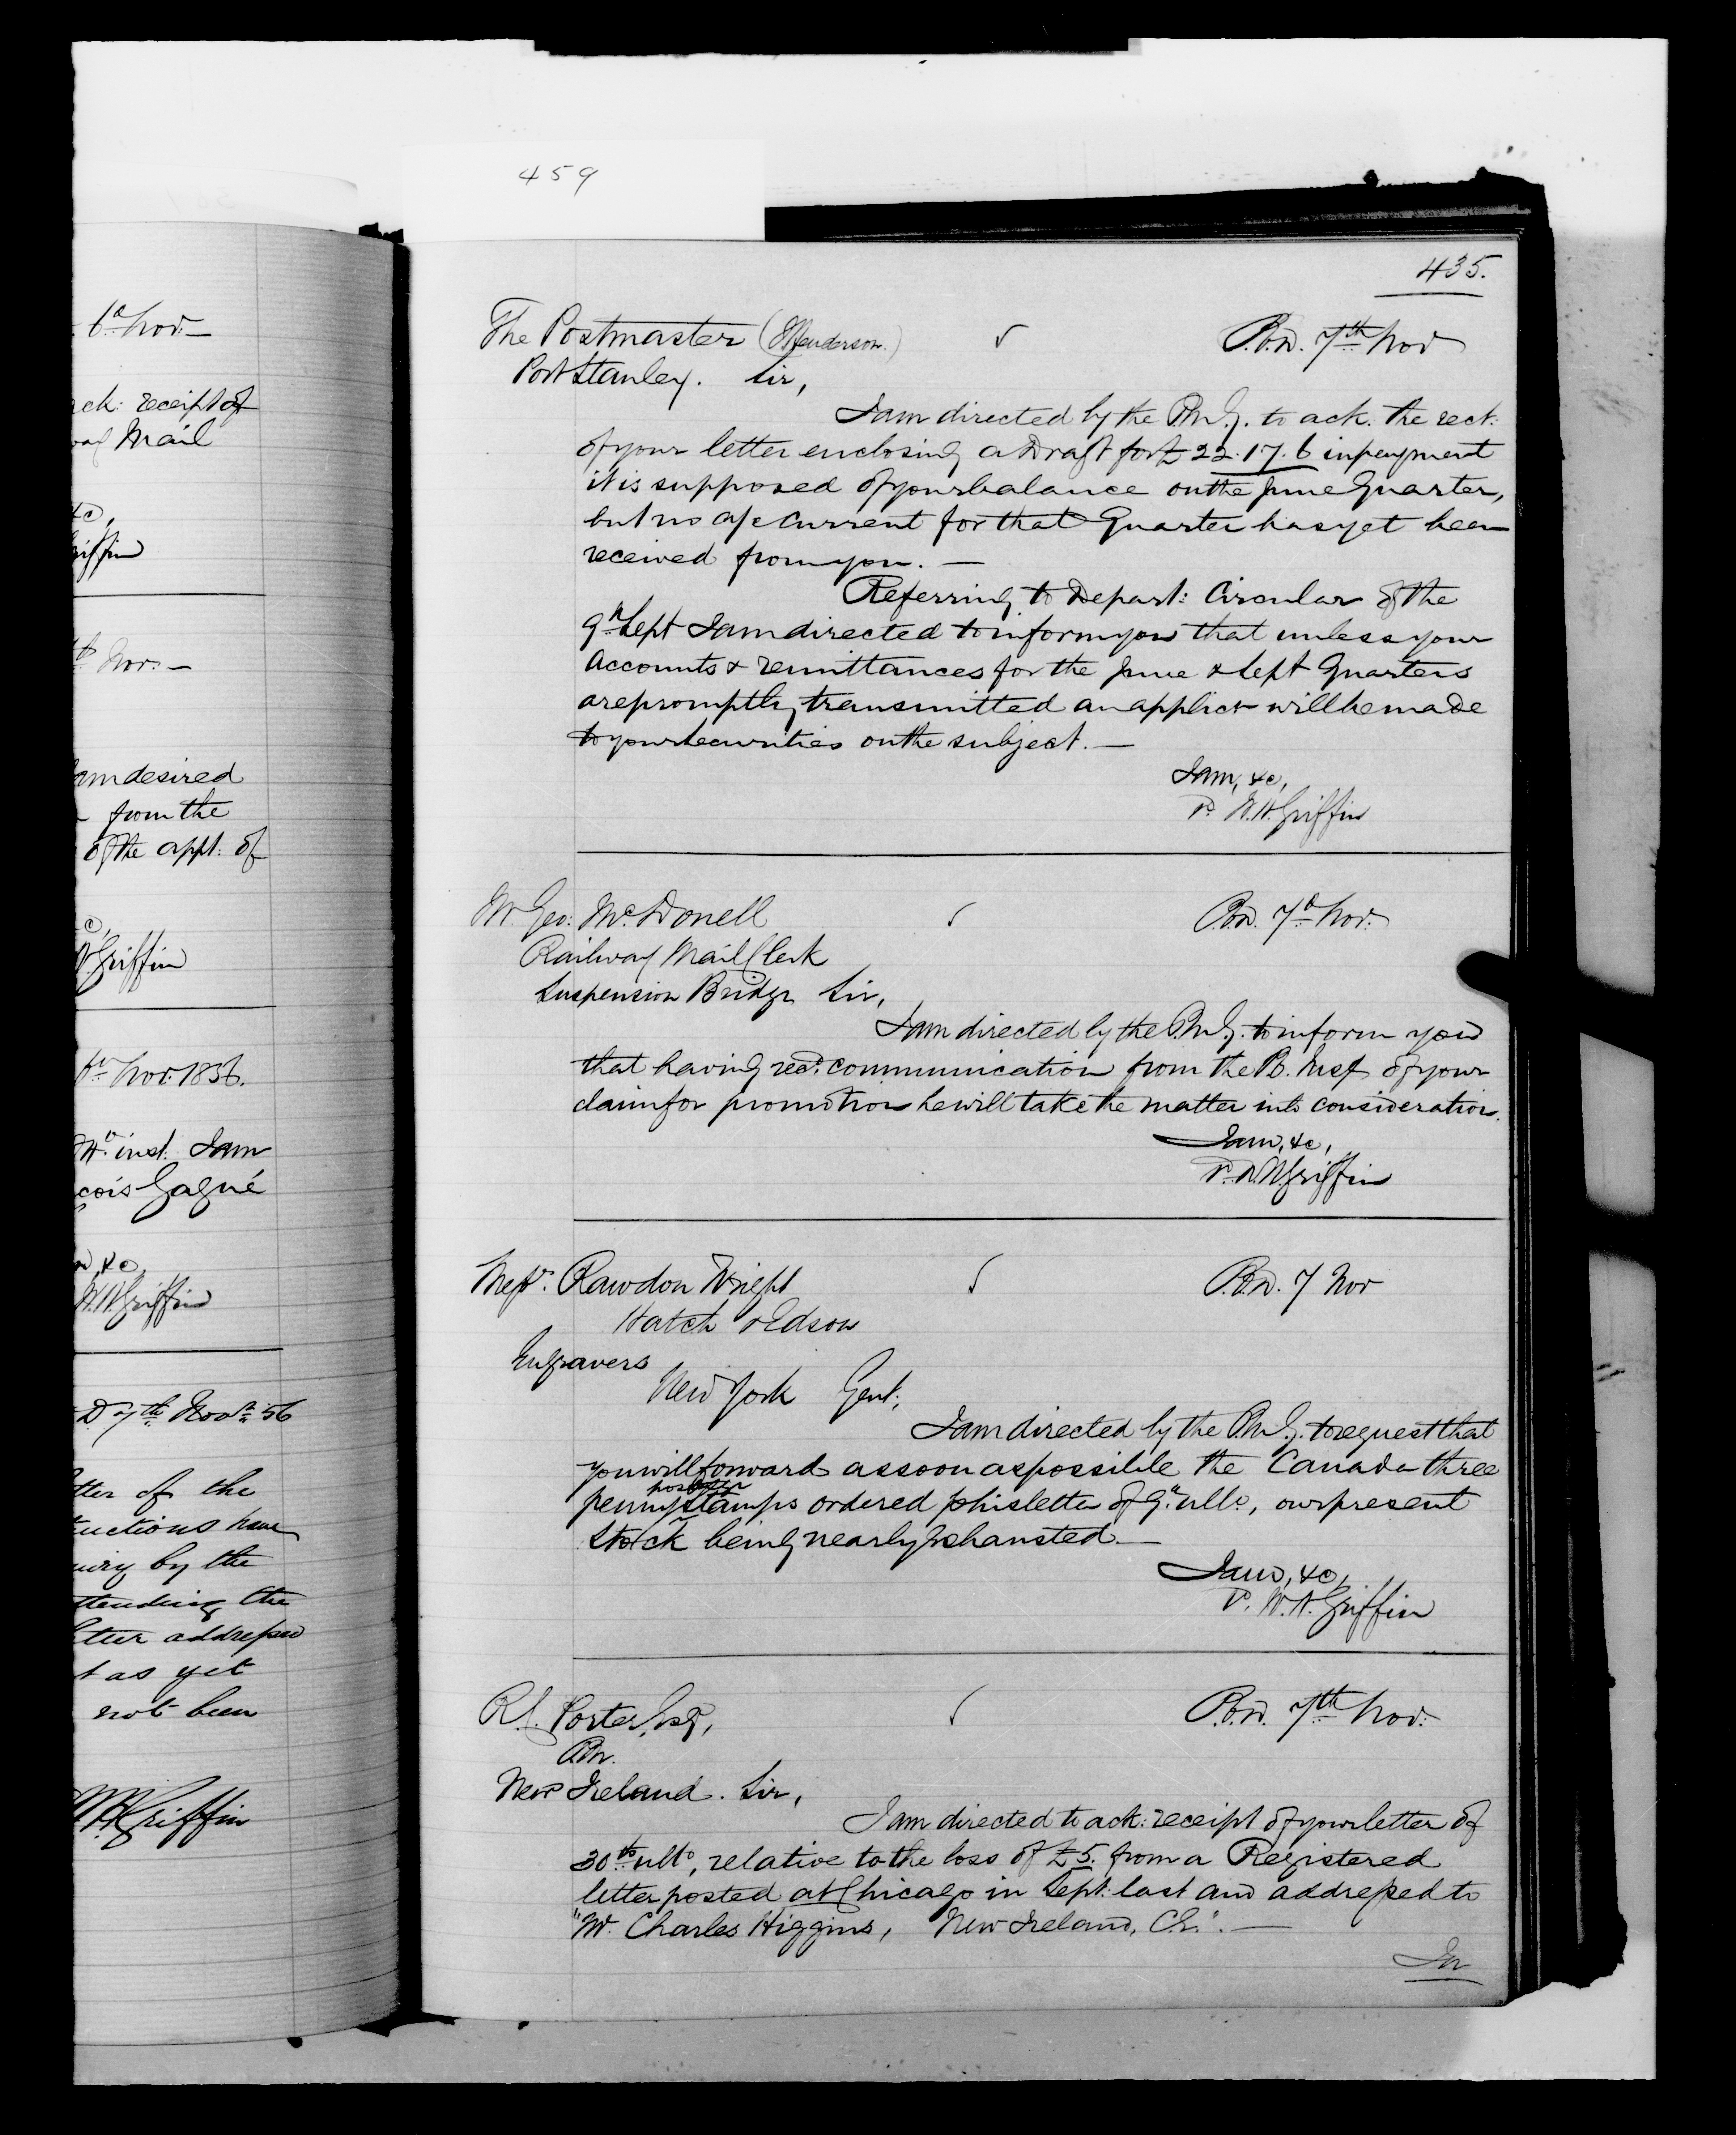 459
6th Nov:—
ack: receipt of
Mail
&c,
Griffin
Nov:—
am desired
from the
of the appt: of
c,
Griffin
Nov: 1856.
inst: I am
çois Gagné
&c,
W.H. Griffin
D 7th Novr 56
tter of the
uctions have
uiry by the
ttending the
tter addressed
t as yet
not been
WH Griffin
435.
The Postmaster (Henderson.) P.O.D. 7th Nov
Port Stanley. Sir,
I am directed by the P.M.G. to ack. the rect:
of your letter enclosing a Draft for £22.17.6 in payment
it is supposed of your balance on the June Quarter,
but no a/c current for that Quarter has yet been
received from you. —
Referring to Depart: Circular of the
9th Sept I am directed to inform you that unless your
Accounts & remittances for the June & Sept Quarters
are promptly transmitted an applicn will be made
to your securities on the subject. —
I am, &c,
P. W.H. Griffin
Mr Geo: McDonell P.O.D. 7th Nov:
Railway Mail Clerk
Suspension Bridge Sir,
I am directed by the P.M.G. to inform you
that having recd. communication from the P.O. Insp of your
claim for promotion he will take the matter into consideration.
I am, &c,
P. W.H. Griffin
Messrs. Rawdon Wright P.O.D. 7 Nov
Hatch & Edson
Engravers
New York Gent:
I am directed by the P.M.G. to request that
you will forward as soon as possible the Canada three
penny postage stamps ordered p his letter of 9th ulto, our present
Stock being nearly exhausted —
I am, &c,
P. W.H. Griffin
R.L. Porter, Esq, P.O.D. 7th Nov:
P.M.
New Ireland. Sir,
I am directed to ack: receipt of your letter of
30th ulto, relative to the loss of £5. from a Registered
letter posted at Chicago in Sept: last and addressed to
"Mr Charles Higgins, New Ireland, C.E.". —
In